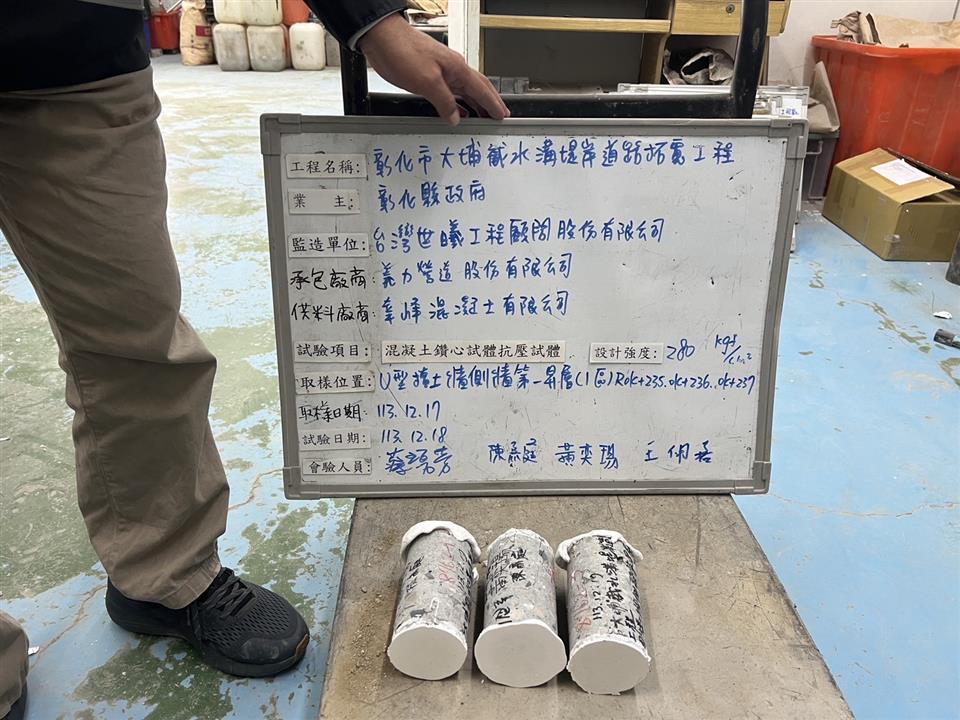 工程名稱: 彰化市大埔截水溝堤岸道路拓寬工程
業 主: 彰化縣政府
監造單位: 台灣世曦工程顧問股份有限公司
承包廠商: 義力營造股份有限公司
供料廠商: 峯暐混凝土有限公司
試驗項目: 混凝土鑽心試體抗壓試體 設計強度: 280 kgf/cm2
取樣位置: U型擋土牆側牆第一昇層(1區)R0k+235.0k+236.0k+237
取樣日期: 113.12.17
試驗日期: 113.12.18
會驗人員: 陳彥庭 黃奕瑒
113.12.17